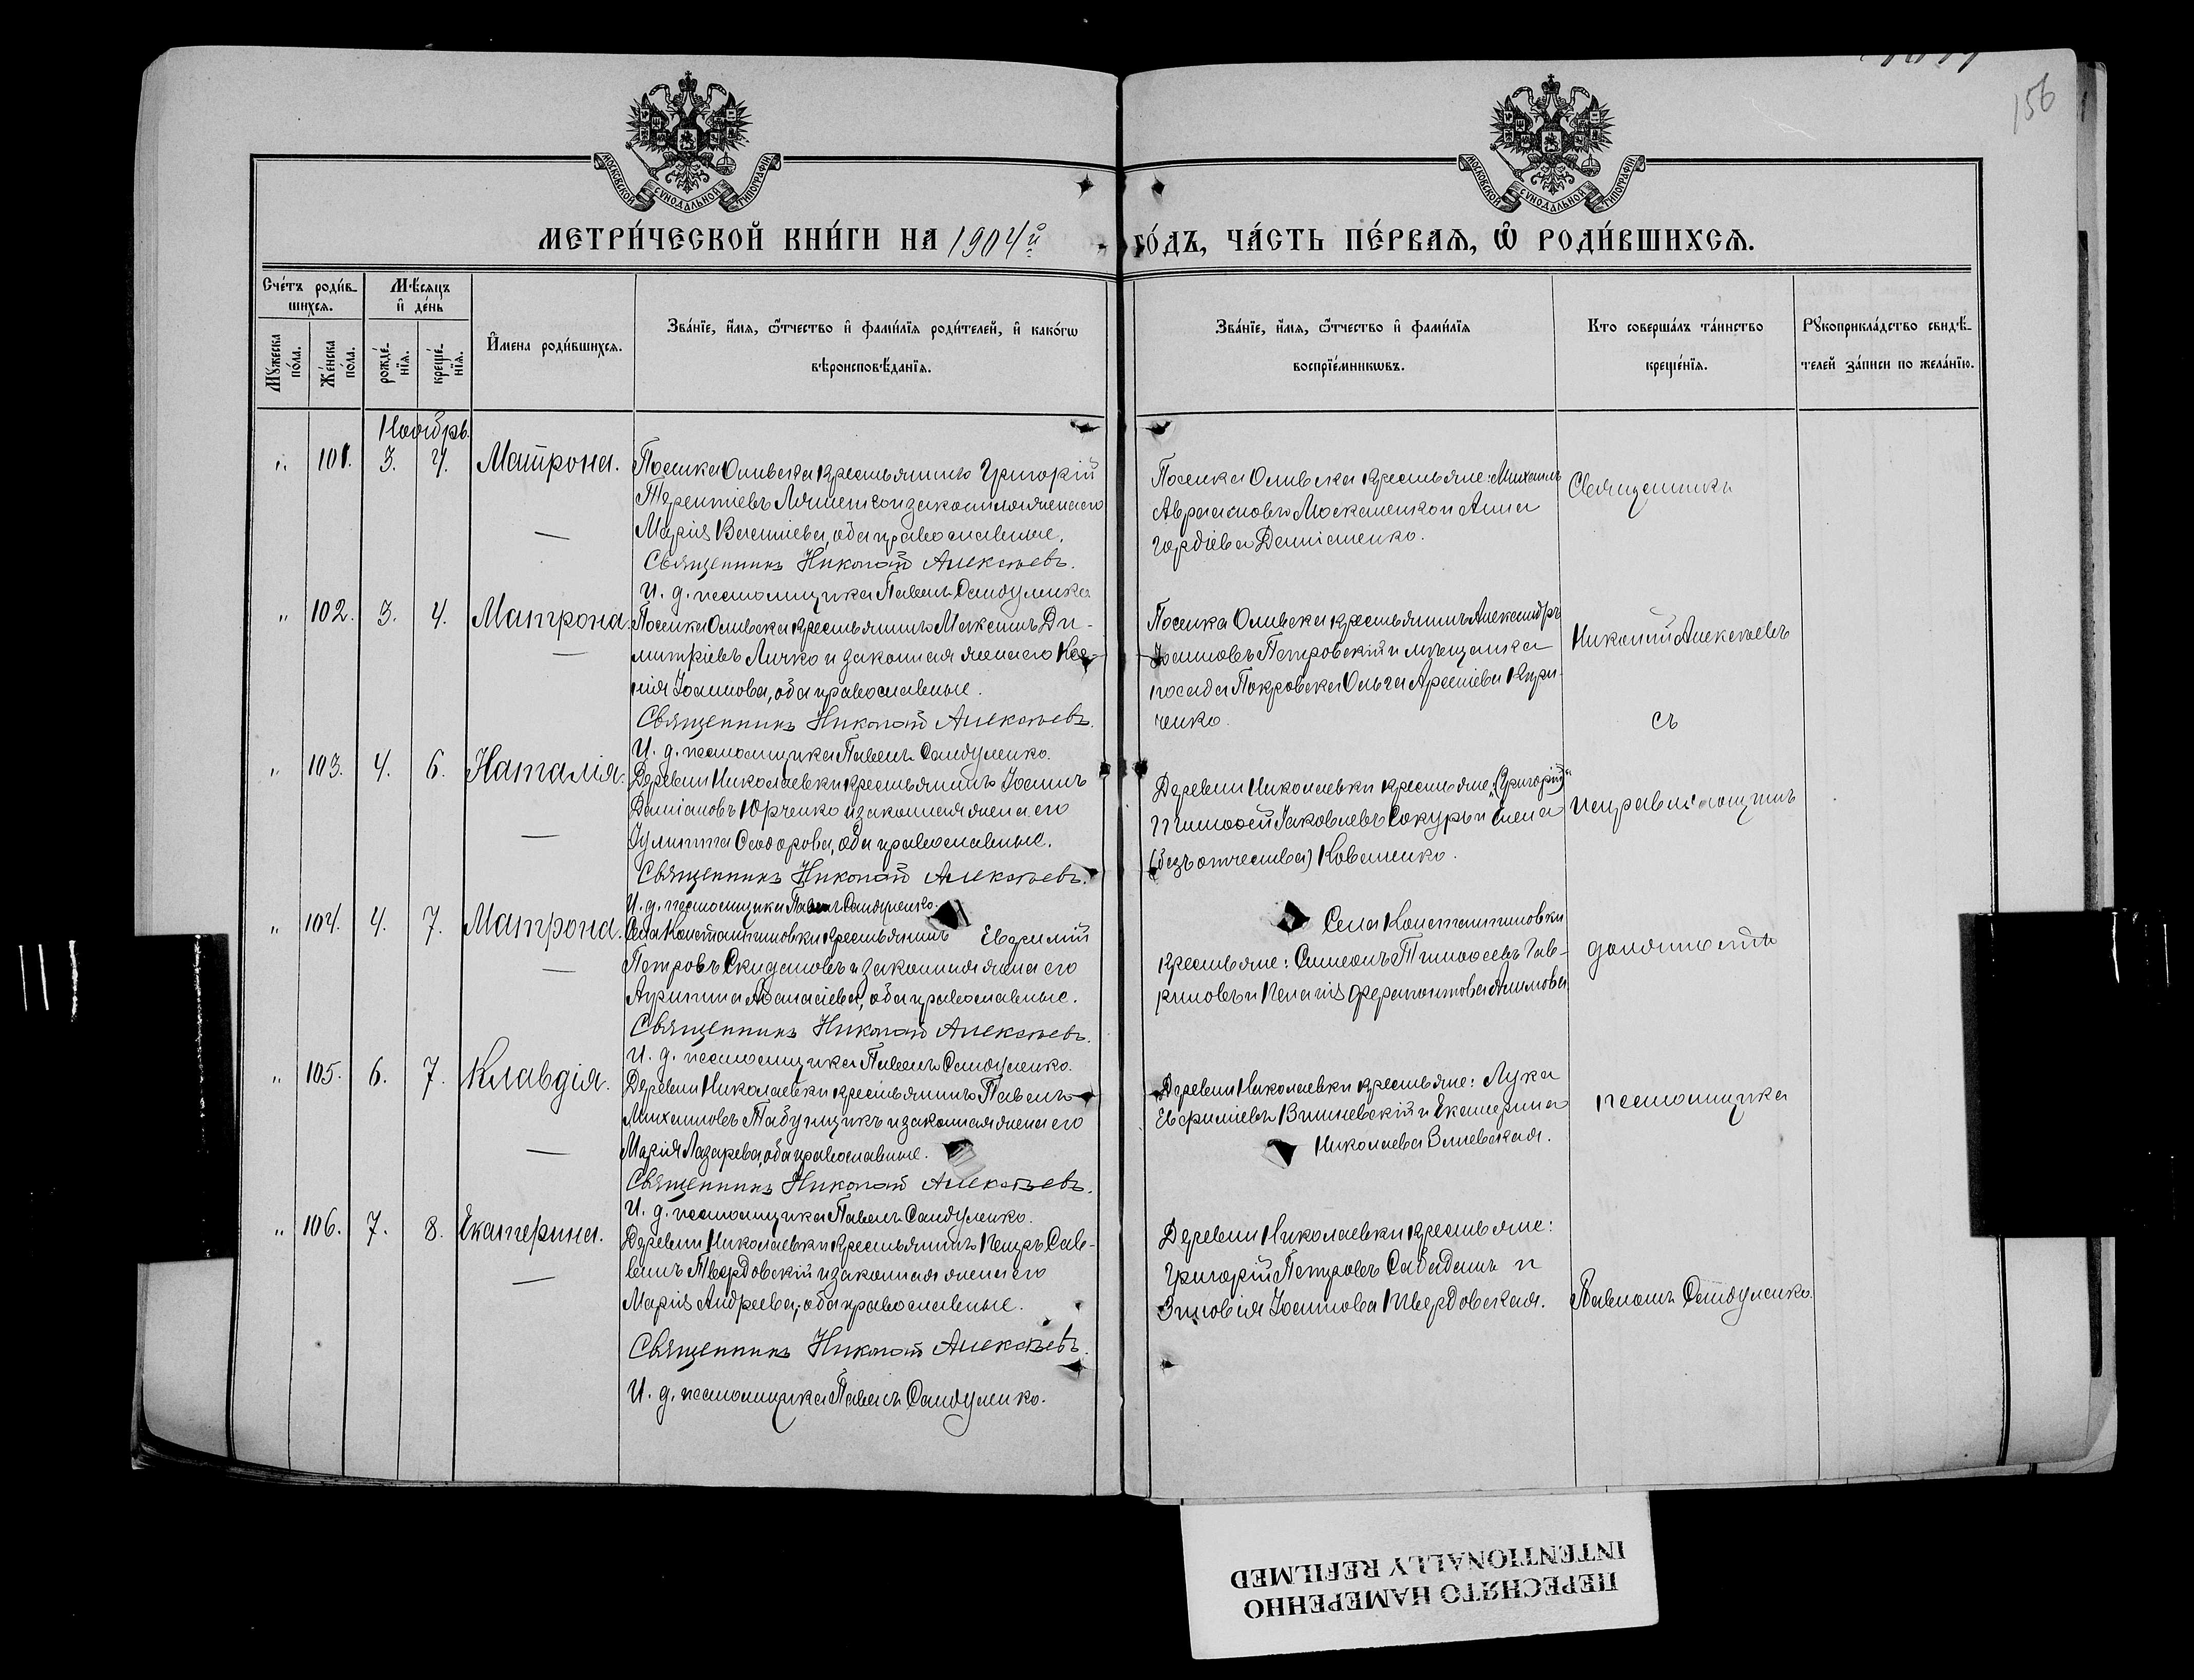 156
МОСКОВСКОЙ СѴНОДАЛЬНОЙ ТИПОГРАФІИ
МОСКОВСКОЙ СѴНОДАЛЬНОЙ ТИПОГРАФІИ
МЕТРИ́ЧЕСКОЙ КНИ́ГИ НА 1904й
ГО́ДЪ, ЧА́СТЬ ПЕ́РВАЯ, Ѡ РОДИ́ВШИХСЯ.
Сче́тъ роди́в-
шихся.
Мѣ́сяцъ
и де́нь
Мꙋжеска
по́ла.
Же́нска
по́ла.
рожде́-
нїя.
креще́-
нїя.
И҆мена роди́вшихся.
Зва́нїе, и҆́мя, ѻ҆́тчество и҆ фами́лїя роди́телей, и҆ како́гѡ
вѣроисповѣ́данїя.
Зва́нїе, и҆́мя, ѻ҆́тчество и҆ фами́лїя
воспрїе́мникѡвъ.
Кто соверша́лъ та́инство
креще́нїя.
Рꙋкоприкла́дство свидѣ́-
телей за́писи по жела́нїю.
Ноябрь.
„ 101. 3. 4. Матрона.
Поселка Оливска крестьянинъ Григорій
Терентіевъ и законная жена его
Марія, оба православные.
Священникъ Николай Алексѣевъ.
И. д. псаломщика Павелъ Сандуленко
Поселка Оливска крестьяне: Михаилъ
Авраамовъ и Анна
Гордіева Даміаненко.
Священникъ
„ 102. 3. 4. Матрона.
Поселка Оливска крестьянинъ Максимъ Ди-
митріевъ Личко и законная жена его Ксе-
нія Іоаннова, оба православные.
Священникъ Николай Алексѣевъ.
И. д. псаломщика Павелъ Сандуленко.
Поселка Оливска крестьянинъ Александръ
Іоанновъ Петровскій и мѣщанка
посада Покровска Ольга Арсеніева Кири-
ченко.
Николай Алексѣевъ
съ
„ 103. 4. 6. Наталія.
Деревни Николаевки крестьянинъ Іоаннъ
Даміановъ Юрченко и законная жена его
Іулитта Ѳеодорова, оба православные.
Священникъ Николай Алексѣевъ.
И. д. псаломщика Павелъ Сандуленко.
Деревни Николаевки крестьяне: „(Григорій)“
Тимоѳей Іаковлевъ Сокуръ и Елена
(безъ отчества) Коваленко.
исправляющимъ
„ 104. 4. 7. Матрона.
Села Константиновки крестьянинъ Евфимій
Петровъ Скидановъ и законная жена его
Агриппина Аѳанасіева, оба православные.
Священникъ Николай Алексѣевъ.
И. д. псаломщика Павелъ Сандуленко.
Села Константиновки
крестьяне: Симеонъ Тимоѳеевъ Гав-
риловъ и Пелагія Ферапонтова
должность
„ 105. 6. 7. Клавдія.
Деревни Николаевки крестьянинъ Павелъ
Михаиловъ Табунщикъ и законная жена его
Марія Лазарева, оба православные.
Священникъ Николай Алексѣевъ.
И. д. псаломщика Павелъ Сандуленко.
Деревни Николаевки крестьяне: Лука
Евфиміевъ Вишневскій и Екатерина
Николаева
псаломщика
„ 106. 7. 8. Екатерина.
Деревни Николаевки крестьянинъ Петръ Сав-
винъ Твердовскій и законная жена его
Марія Андреева, оба православные.
Священникъ Николай Алексѣевъ.
И. д. псаломщика Павелъ Сандуленко.
Деревни Николаевки крестьяне:
Григорій Петровъ Сабаданъ и
Зиновія Іоаннова Твердовская.
Павломъ Сандуленко.
ПЕРЕСНЯТО НАМЕРЕННО
INTENTIONALLY REFILMED